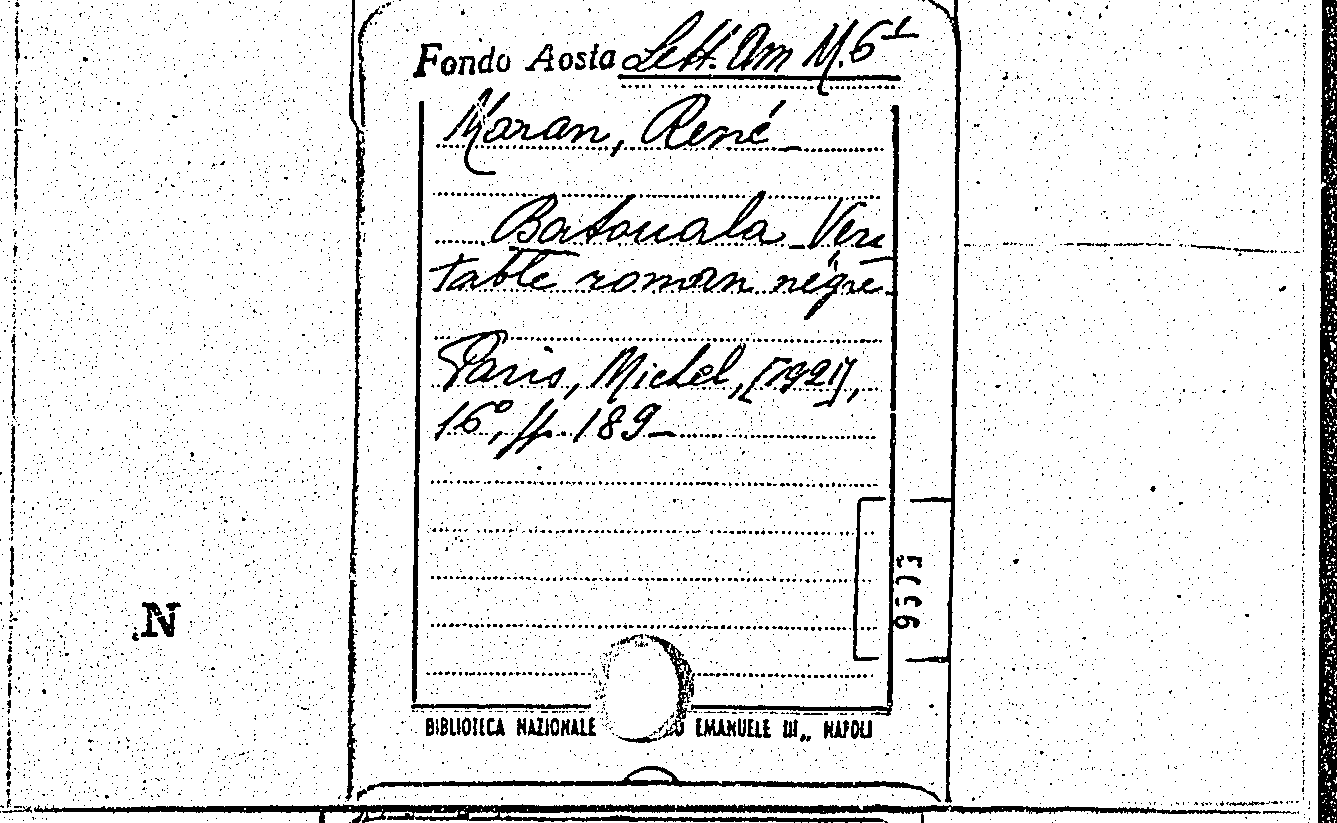 Fondo Aosta Lett. Am M. 6¹
Maran, René
Batouala Véri
table roman nègre.
Paris, Michel, [1921],
16°, pp. 189
N
BIBLIOTECA NAZIONALE EMANUELE III„ NAPOLI